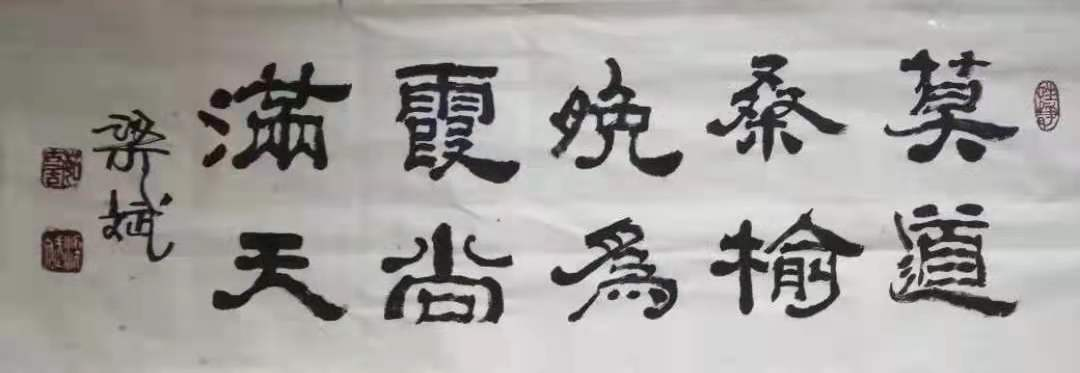 莫道
桑榆
晚為
霞尚
滿天
梁斌